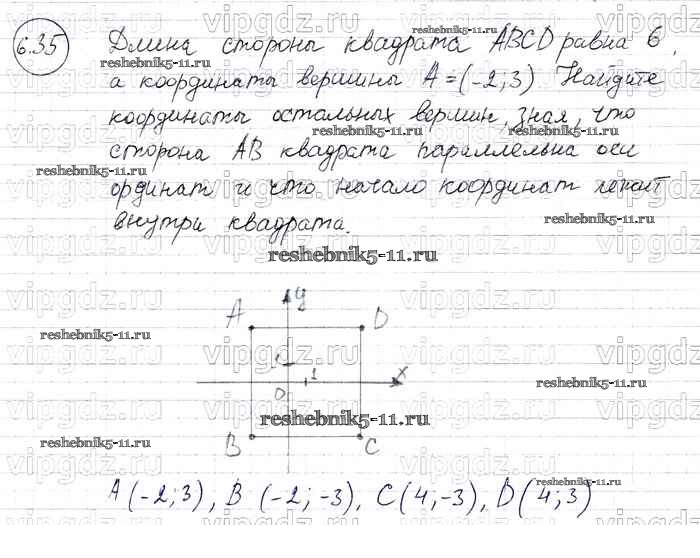 6.35
Длина стороны квадрата ABCD равна 6,
а координаты вершины A=(-2;3) Найдите
координаты остальных вершин, зная, что
сторона AB квадрата параллельна оси
ординат и что начало координат лежит
внутри квадрата.
reshebnik5-11.ru
A y D
1 x
0 1
reshebnik5-11.ru
B C
A (-2;3), B (-2;-3), C(4;-3), D(4;3)
vipgdz.ru